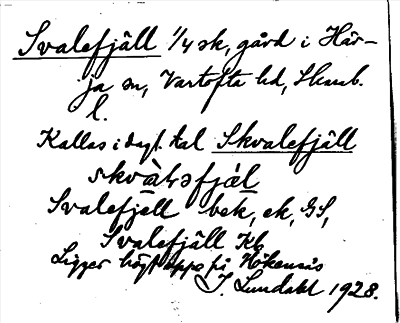 Svalefjäll 1/4 sk, gård i Här-
ja sn, Vartofta hd, Skarab.
l.
Kallas i dagl. tal Skvalefjäll
skvàləfjäl
Svalefjell bek, ek, GS,
Svalefjäll Kb
Ligger högt uppe på Hökensås
J. Lundahl 1928.